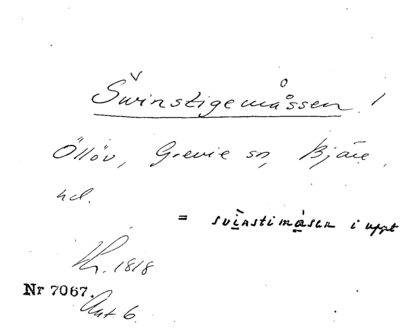 Svinstigemåssen!
Öllöv, Grevie sn, Bjäre
hd.
= svinstimåsen i uppt
Kr. 1818
Nr 7067.
Ant 6